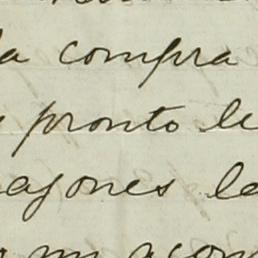 la compra
pronto le
ajones le
mi acom